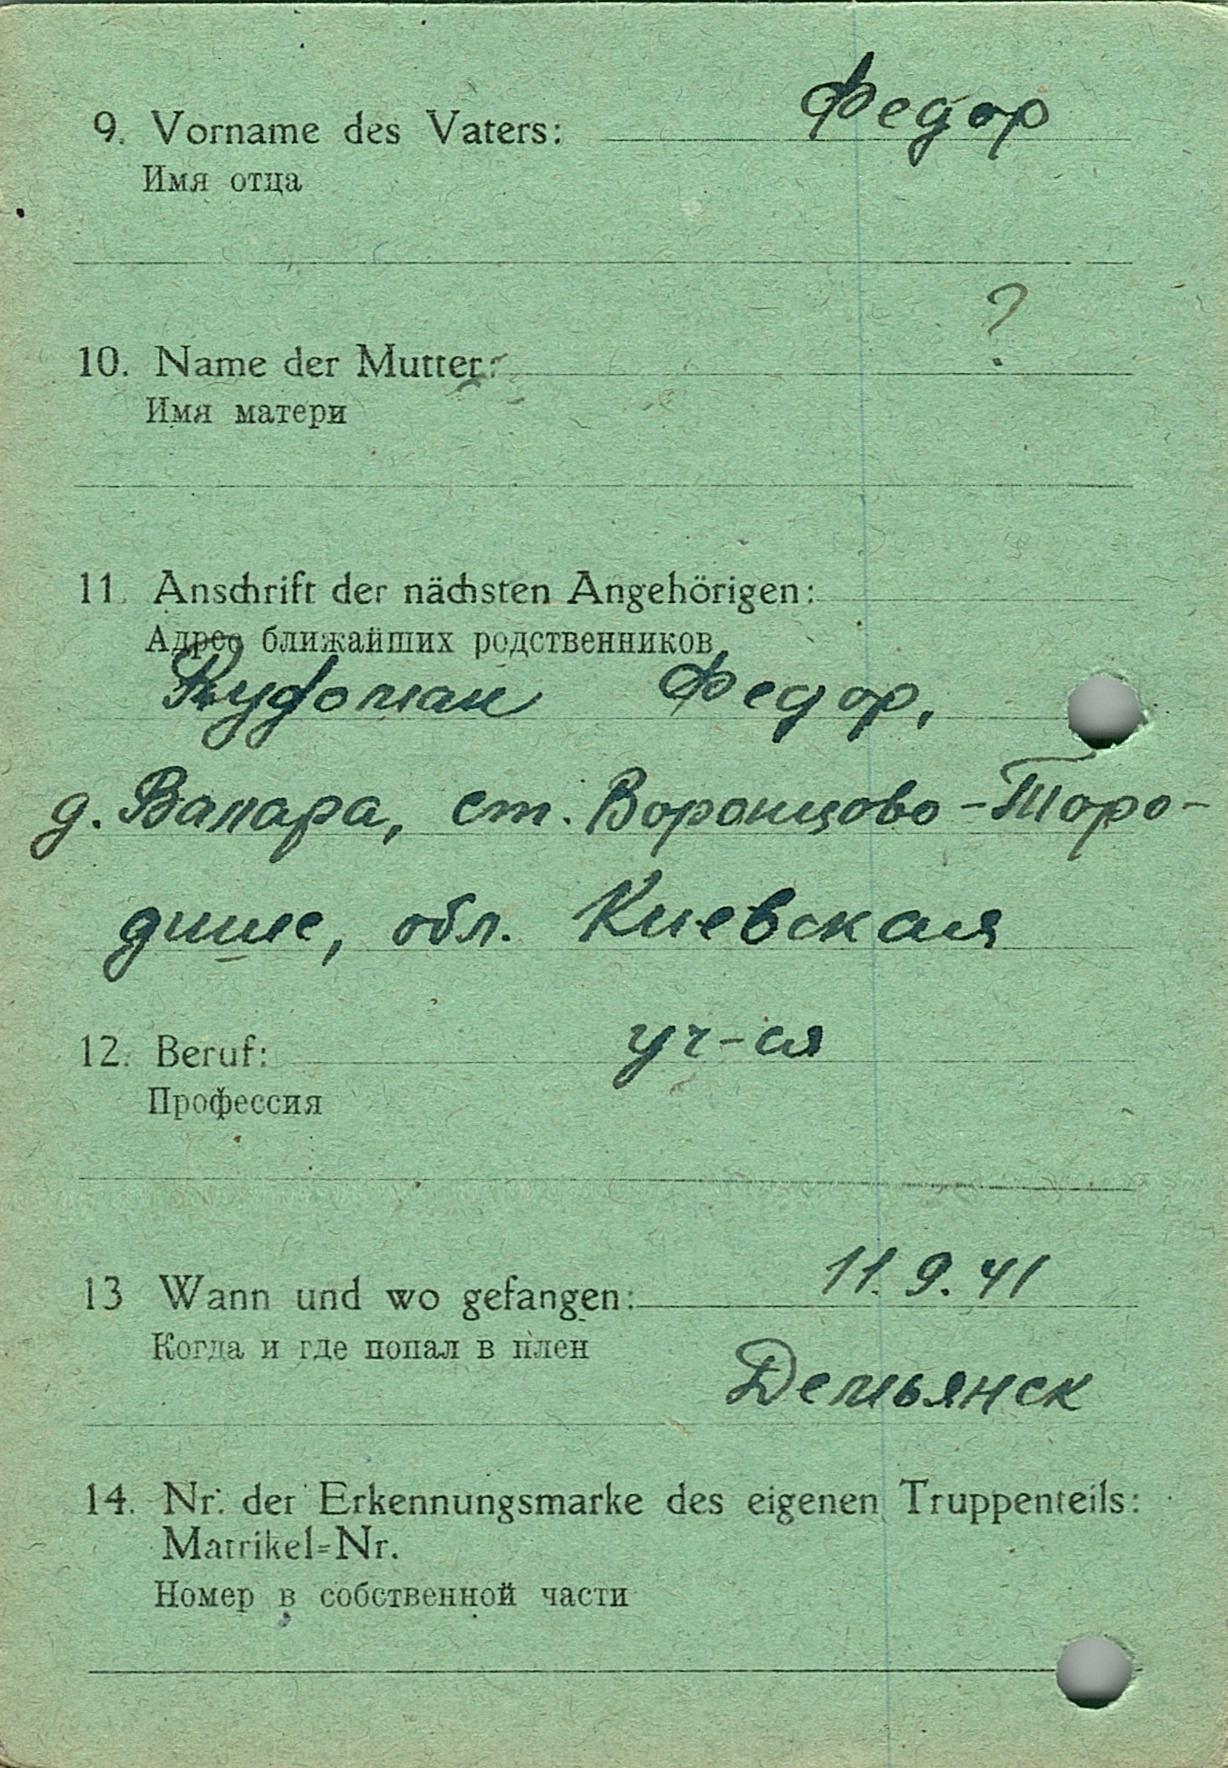 9. Vorname des Vaters: Федор
Имя отца
?
10. Name der Mutter:
Имя матери
11. Anschrift der nächsten Angehörigen:
Адрес ближайших родственников
Федор,
д. Валара, ст. Воронцово-Торо-
дише, обл. Киевская
12. Beruf: уч-ся
Профессия
13 Wann und wo gefangen: 11.9.41
Когда и где попал в плен
Демьянск
14. Nr. der Erkennungsmarke des eigenen Truppenteils:
Matrikel=Nr.
Номер в собственной части